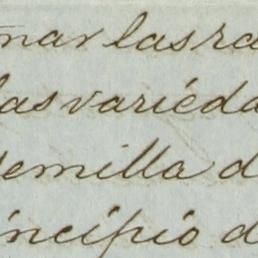 mar las ra
las varieda
semilla d
incipio d